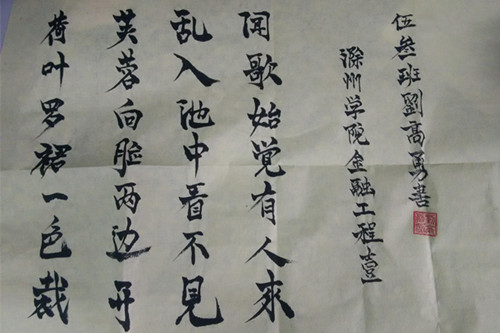 荷叶罗裙一色裁
芙蓉向脸两边开
乱入池中看不見
闻歌始觉有人來
滁州学院金融工程壹
伍叁班劉高勇書